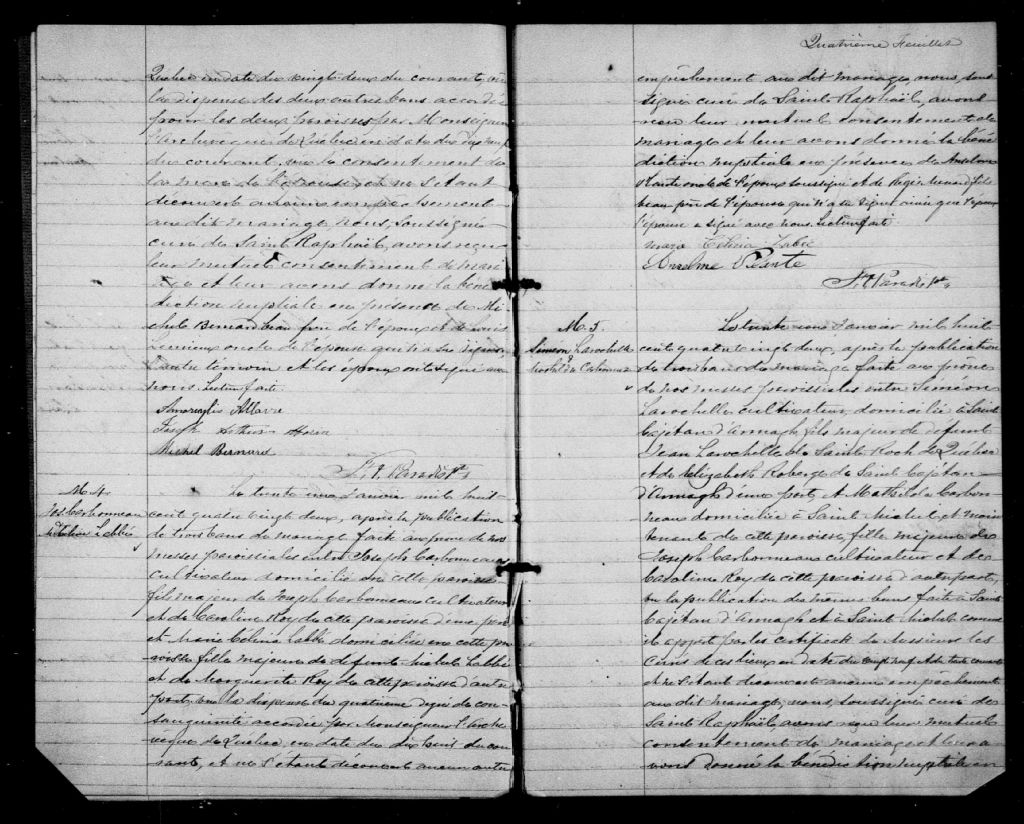 Québec en date du vingt-deux du courant, vu
la dispense des deux autres bans accordée
pour les deux paroisses par Monseigneur
l'archevêque de Québec en date du dix neuf
du courant, vu le consentement de
la mère de l'épouse, et ne s'étant
découvert aucun empêchement
au dit mariage, nous, soussigné
curé de Saint Raphaël, avons reçu
leur mutuel consentement de mari
age et leur avons donné la béné
diction nuptiale en présence de Mi
chel Bernard beau frère de l'époux et de Louis
Lemieux oncle de l'épouse qui n'a su signer,
l'autre témoin et les époux ont signé avec
nous. Lecture faite
Joseph Arthur
Michel Bernard
Paradis Ptre
M. 4.
Jos. Carbonneau
& Labbé
Le trente un Janvier mil huit
cent quatre vingt deux, après la publication
de trois bans de mariage faite au prône de nos
messes paroissiales entre Joseph Carbonneau
cultivateur domicilié en cette paroisse
fils majeur de Joseph Carbonneau cultivateur
et de Caroline Roy de cette paroisse d'une part
et Marie Célina Labbé domiciliée en cette pa
roisse fille majeure de défunt Michel Labbé
et de Marguerite Roy de cette paroisse d'autre
part, vu la dispense du quatrième degré de con
sanguinité accordée par Monseigneur l'arche
vêque de Québec, en date du dix huit du cou
rant, et ne s'étant découvert aucun autre
Quatrième Feuillet
empêchement au dit mariage, nous, sous
signé curé de Saint Raphaël, avons
reçu leur mutuel consentement de
mariage et leur avons donné la béné
diction nuptiale en présence de Anselme
Plante oncle de l'époux soussigné et de Régis Bernard
beau frère de l'épouse qui n'a su signer ainsi que l'époux
l'épouse a signé avec nous. Lecture faite
Marie Célina Labbé
Anselme Plante
Paradis Ptre
M. 5.
Siméon Larochelle
&
Mathilde Carbonneau
Le trente un Janvier mil huit
cent quatre vingt deux, après la publication
de trois bans de mariage faite au prône
de nos messes paroissiales entre Siméon
Larochelle cultivateur, domicilié à Saint
Cajétan d'Armagh, fils majeur de défunt
Jean Larochelle de Saint Roch de Québec
et de Elizabeth Roberge de Saint Cajétan
d'Armagh d'une part, et Mathilde Carbon
neau domiciliée à Saint Michel et main
tenant de cette paroisse, fille majeure de
Joseph Carbonneau cultivateur et de
Caroline Roy de cette paroisse d'autre part,
vu la publication des mêmes bans faite à Saint
Cajétan d'Armagh et à Saint Michel comme
il appert par les certificats de Messieurs les
Curés de ces lieux en date du vingt neuf et du trente courant
et ne s'étant découvert aucun empêchement
au dit mariage, nous, soussigné curé de
Saint Raphaël, avons reçu leur mutuel
consentement de mariage et leur a
vons donné la bénédiction nuptiale en